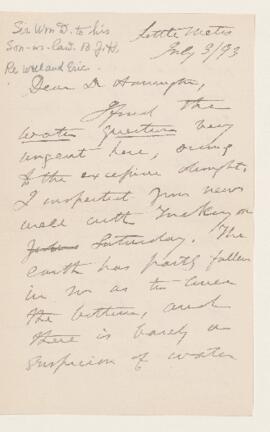 Sir Wm D. to his
Son-in-law B.J.H.
Re Well and Eric.
Little Metis
July 3/93
Dear Dr Harrington,
I find the
water question very
urgent here, owing
to the excessive drought.
I inspected your new
well with on
Saturday. The
earth has partly fallen
in so as to cover
the bottom, and
there is barely a
suspicion of water